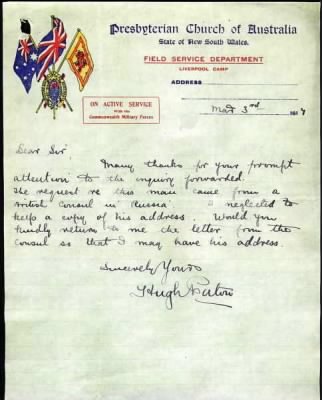 Presbyterian Church of Australia
State of New South Wales.
FIELD SERVICE DEPARTMENT
LIVERPOOL CAMP
ADDRESS
ON ACTIVE SERVICE
WITH THE
Commonwealth Military Forces
Mar 3rd 1917
Dear Sir
Many thanks for your prompt
attention to the inquiry forwarded.
The request re this man came from a
British Consul in Russia. I neglected to
keep a copy of his address. Would you
kindly return to me the letter from the
Consul so that I may have his address.
Sincerely Yours
Hugh